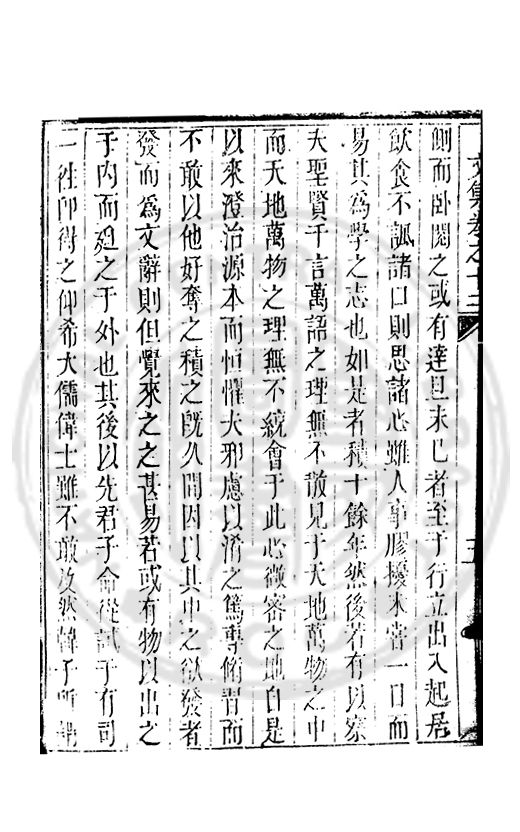 文集卷之十三
側而臥閱之或有達旦未已者至于行立出入起居
飲食不諷諸口則思諸心雖人事膠擾未嘗一日而
易其為學之志也如是者積十餘年然後若有以察
夫聖賢千言萬語之理無不散見于天地萬物之中
而天地萬物之理無不統會于此心微密之地自是
以來澄治源本而恒懼夫邪慮以淆之篤專脩習而
不敢以他好奪之積之既久間因以其中之欲發者
發而為文辭則但覺來之之甚易若或有物以出之
于內而廹之于外也其後以先君子命從試于有司
一徃即得之仰希大儒偉士雖不敢及然韓子所